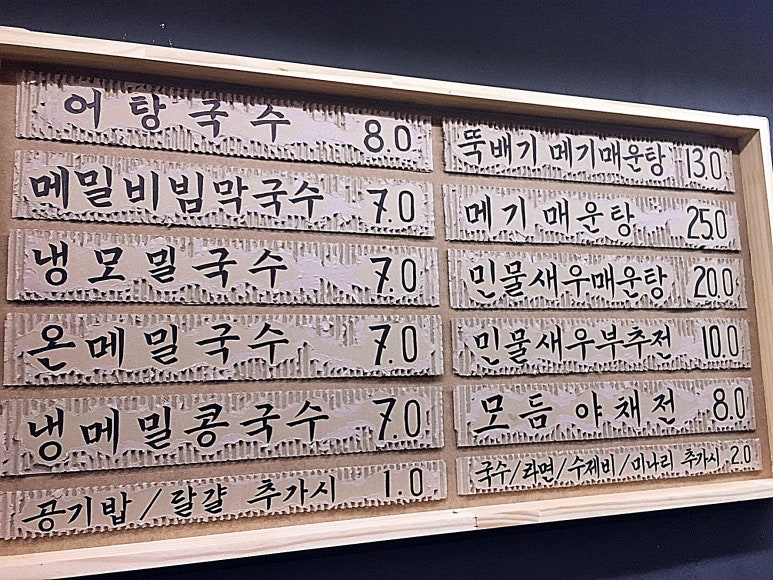 어탕국수 8.0
메밀비빔막국수 7.0
냉모밀국수 7.0
온메밀국수 7.0
냉메밀콩국수 7.0
공기밥/달걀 추가시 1.0
뚝배기 메기매운탕 13.0
메기매운탕 25.0
민물새우매운탕 20.0
민물새우부추전 10.0
모듬야채전 8.0
국수/라면/수제비/미나리 추가시 2.0